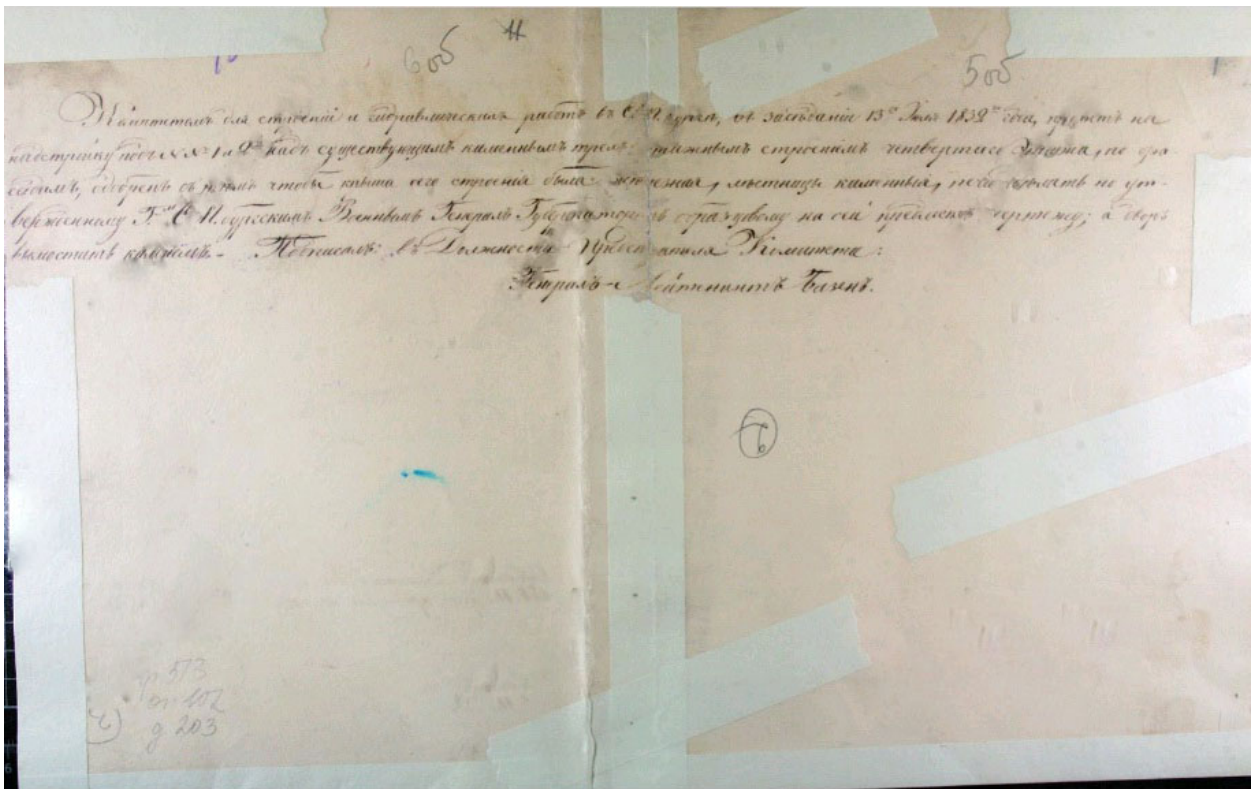 6 об
11
5 об.
Комитетомъ для строеній и гидравлическихъ работъ въ С. П. бургѣ, въ засѣданіи 13го Іюля 1832го года, проэктъ на
надстройку подъ №№ 1 и 2мъ надъ существующимъ каменнымъ трех этажнымъ строеніямъ четвертаго Этажа, по фа-
садамъ, одобренъ съ тѣмъ чтобы крыша сего строенія была желѣзная, лѣстницы каменныя, сдѣлать по ут-
вержденному Г. С. П. бургскимъ Военнымъ Генералъ Губернаторомъ образцовому на сей предметъ чертежу; а дворъ
вымостить камнемъ. - Подписалъ: въ Должности Предсѣдателя Комитета:
Генералъ-Лейтенантъ Базенъ.
6
ф 513
оп 102
д. 203